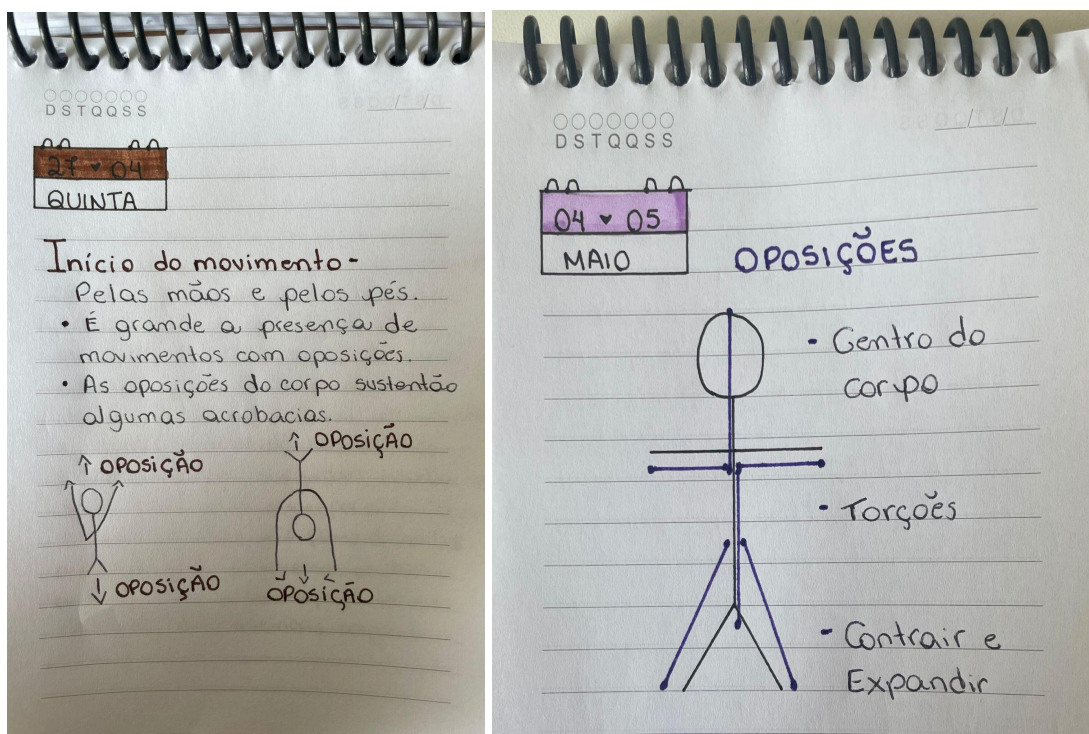 DSTQQSS
27 ♥ 04
QUINTA
Início do movimento-
Pelas mãos e pelos pés.
• É grande a presença de
movimentos com oposições.
• As oposições do corpo sustentão
algumas acrobacias.
↑ OPOSIÇÃO
↓ OPOSIÇÃO
↑ OPOSIÇÃO
OPOSIÇÃO
DSTQQSS
04 ♥ 05
MAIO
OPOSIÇÕES
- Centro do
corpo
- Torções
- Contrair e
Expandir